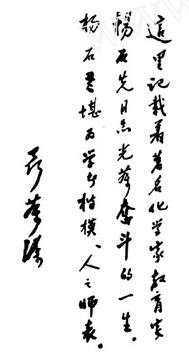 这里记载着著名化学家教育家
杨石先同志光荣奋斗的一生。
杨石老堪为学者楷模、人之师表。
聂荣臻